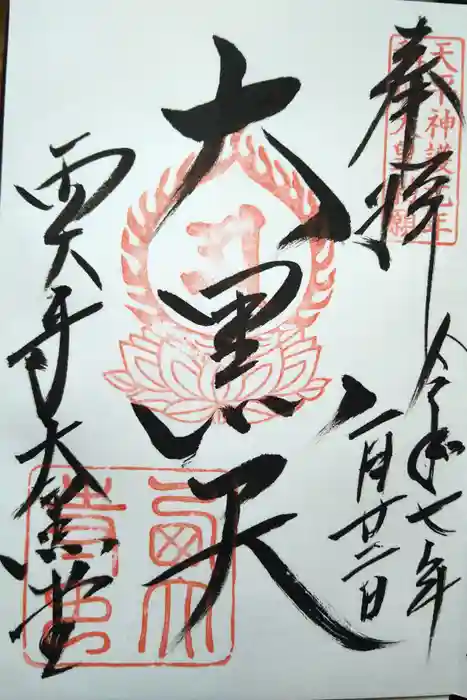 奉拝
天平神護元年
令和七年
月廿二日
大黒天
西大寺大黒堂